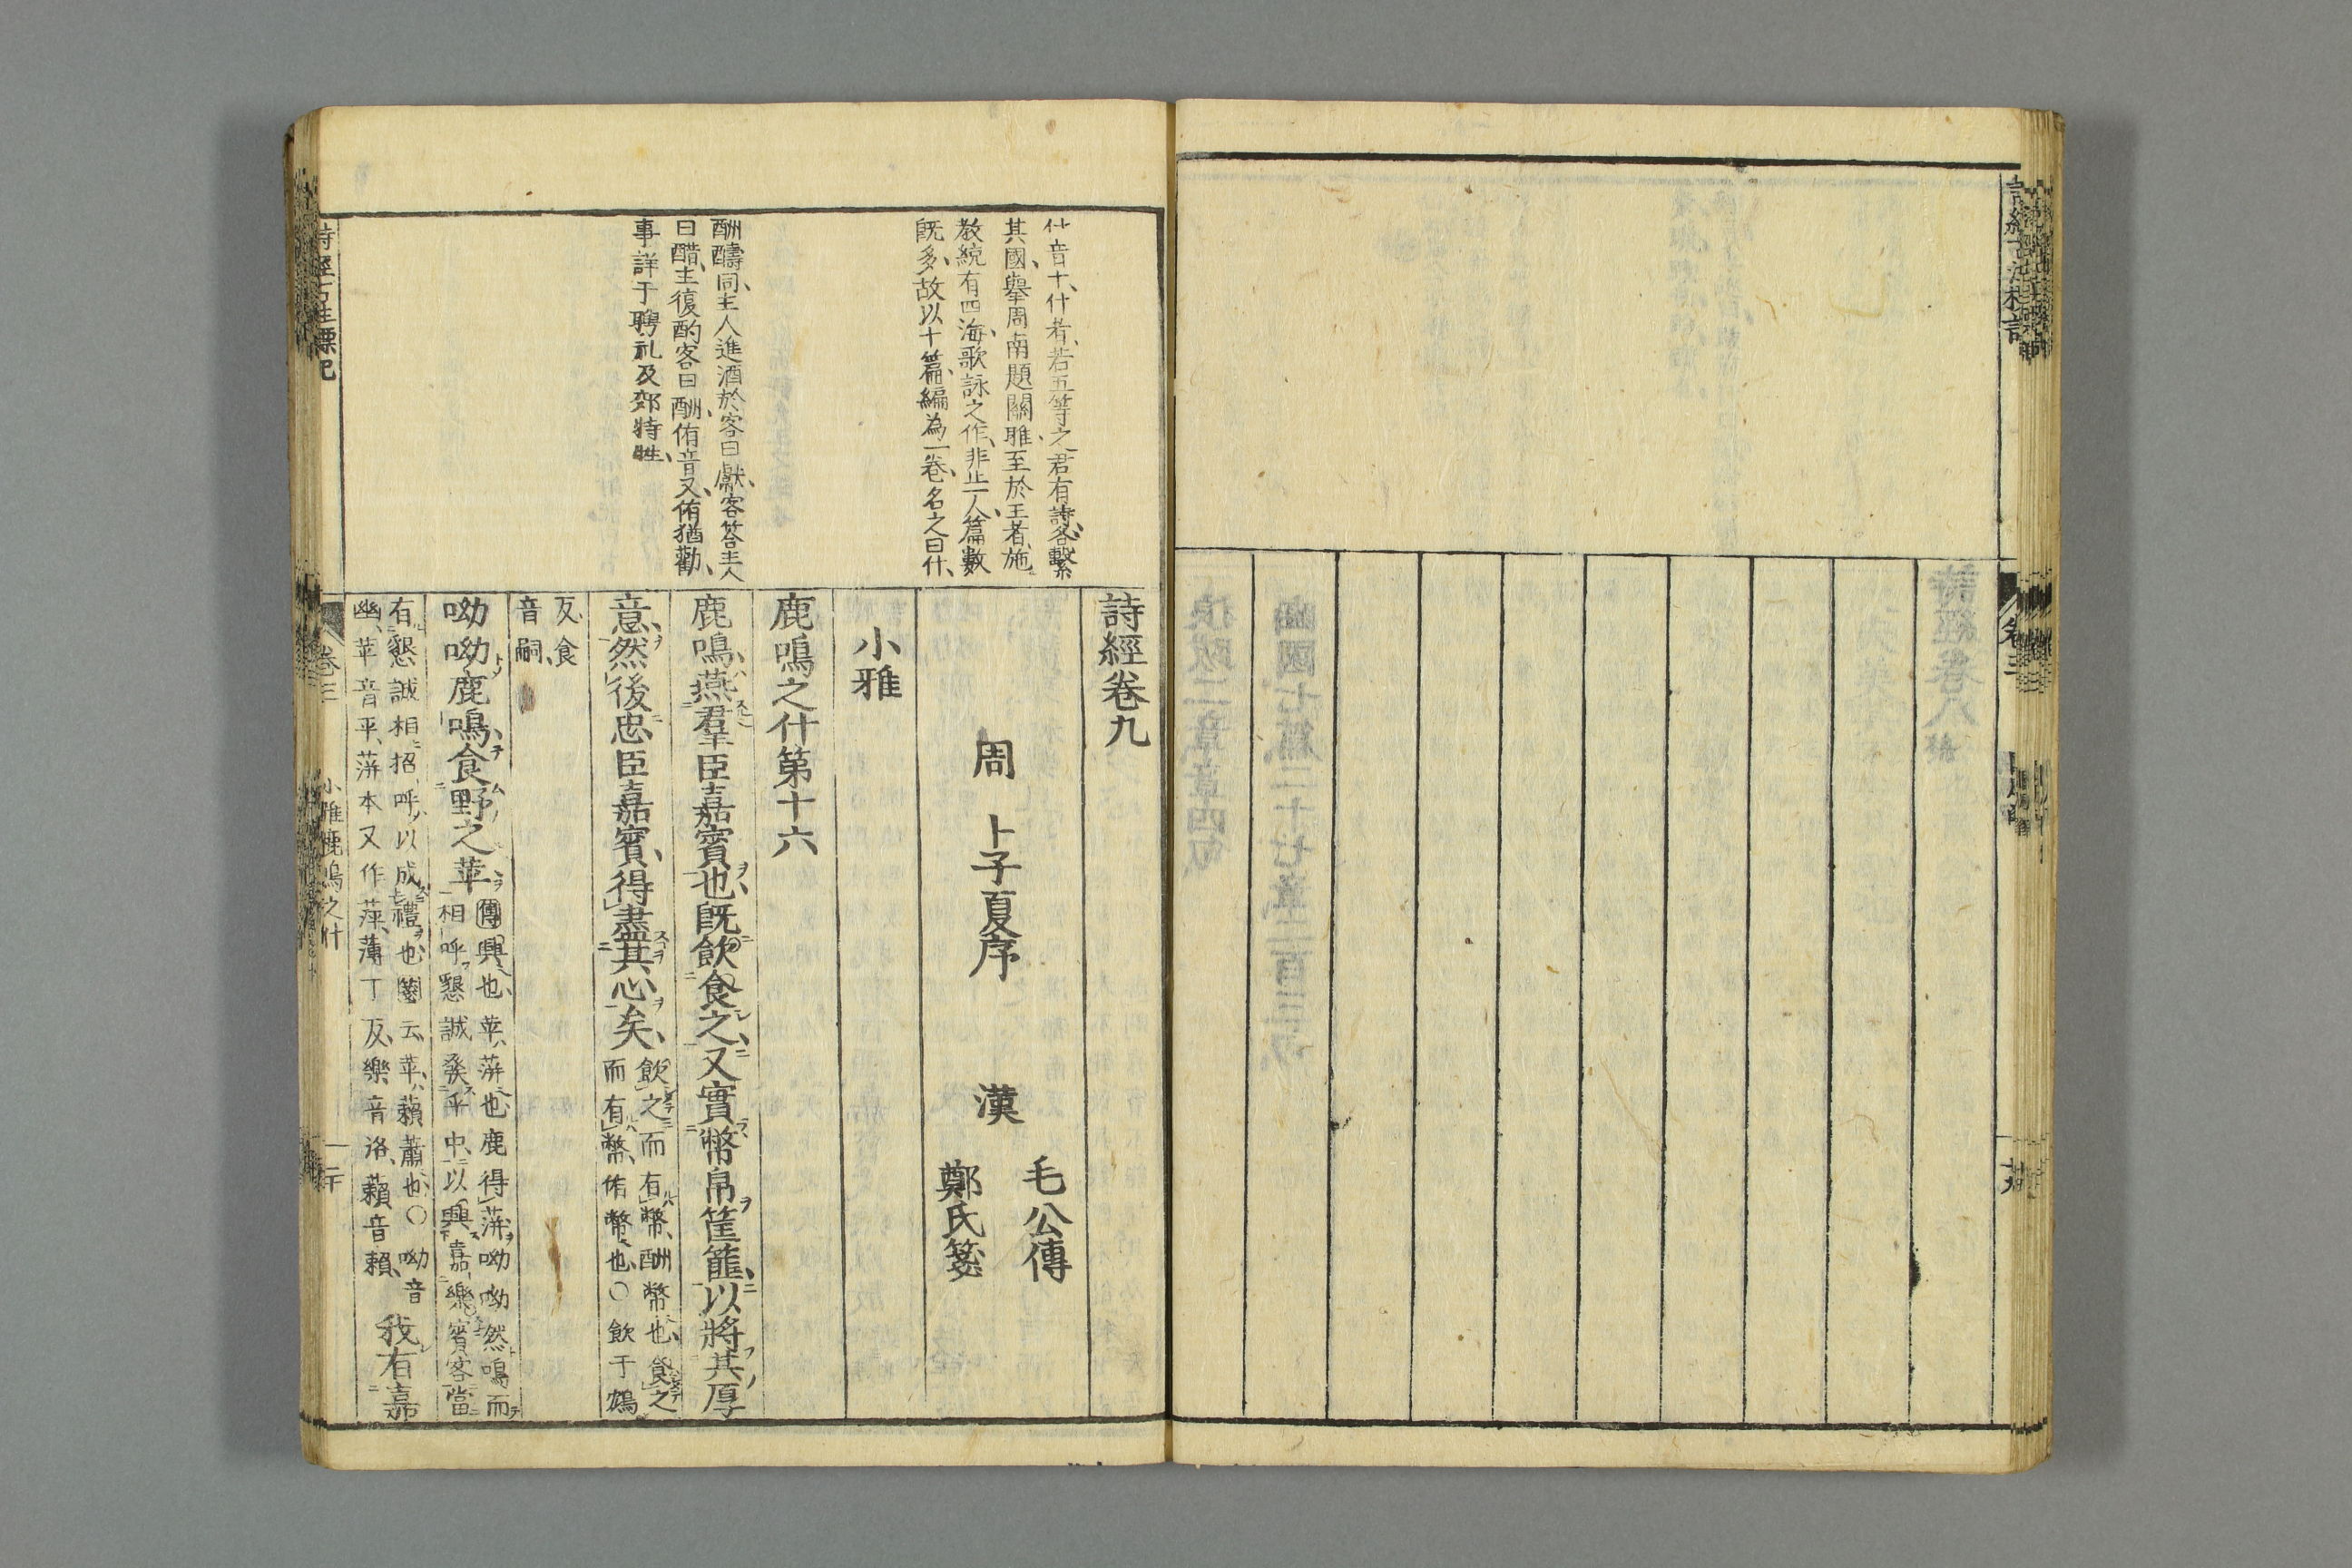 什音十、什者、若五等之君有詩、各繫
其國、舉周南題關雎、至於王者、施
教統有四海、歌詠之作、非止一人、篇數
旣多、故以十篇、編為一卷、名之曰什、
酬醻同、主人進酒於客曰獻、客答主人
曰醋、主復酌客曰酬、侑音又、侑猶勸、
事詳于聘礼及郊特牲、
詩經卷九
周 卜子夏序
漢 毛公傳
鄭氏箋
小雅
鹿鳴之什第十六
鹿鳴、燕羣臣嘉賓也、旣飲食之、又實幣帛筐篚、以將其厚
意、然後忠臣嘉賓、得盡其心矣、
飲之而有幣、酬幣也、食之
而有幣、侑幣也、〇飲于鴆
反、食
音嗣、
呦呦鹿鳴、食野之苹、
傳興也、苹、蓱也、鹿得蓱、呦呦然鳴而
相呼、懇誠發乎中、以興嘉樂賓客、當
有懇誠相招呼、以成禮也、箋云、苹、藾蕭也、〇呦音
幽、苹音平、蓱本又作萍、薄丁反、樂音洛、藾音賴、
我有嘉
卷三
小雅鹿鳴之什